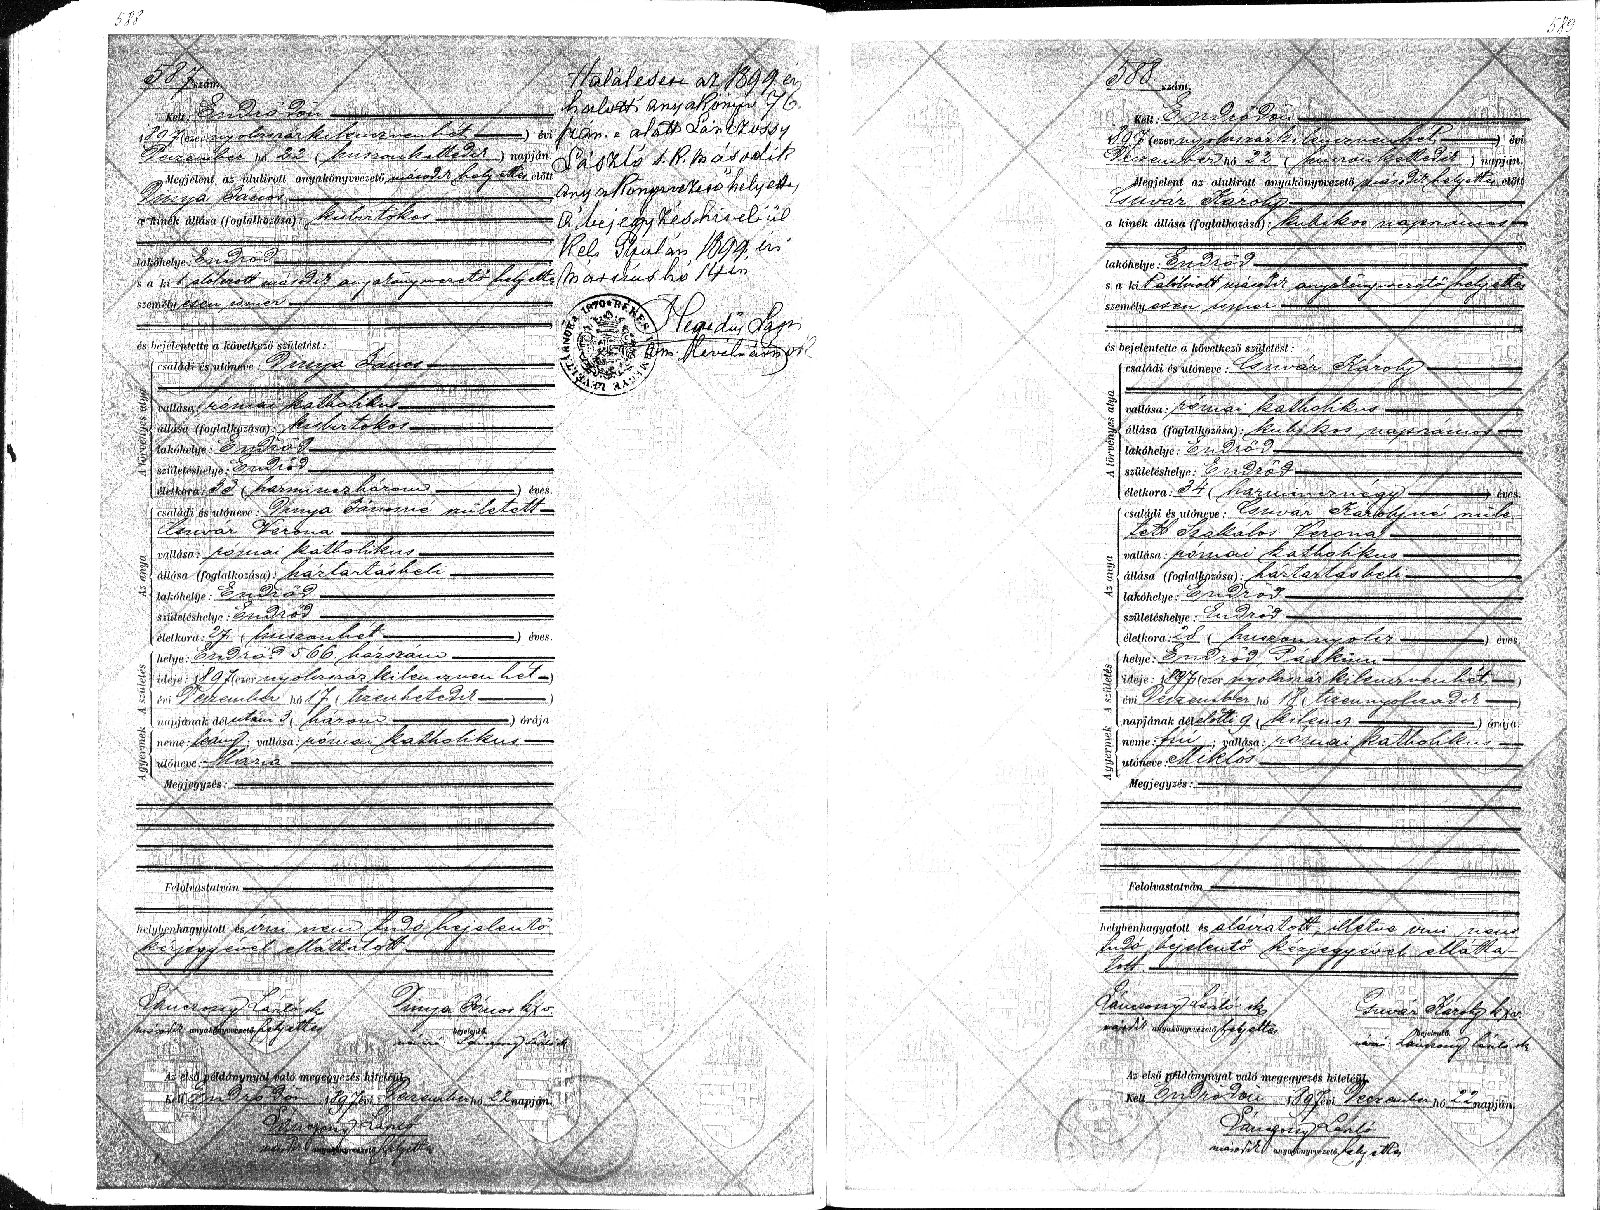 588
587 szám.
Kelt: Endrődön
1897 (ezer nyolczszázkilenczvenhét) évi
Deczember hó 22 (huszonkettedik) napján.
Megjelent az alulirott anyakönyvvezető második helyettes előtt
Dinya János
a kinek állása (foglalkozása): kisbirtokos
lakóhelye: Endrőd
s a kit alólirott második anyakönyvvezető helyettes
személyesen ismer
és bejelentette a következő születést:
A törvényes atya
családi és utóneve: Dinya János
vallása: római katholikus
állása (foglalkozása): kisbirtokos
lakóhelye: Endrőd
születéshelye: Endrőd
életkora: 33 (harminczhárom) éves.
Az anya
családi és utóneve: Dinya Jánosné született
Csuvár Verona
vallása: római katholikus
állása (foglalkozása): háztartásbeli
lakóhelye: Endrőd
születéshelye: Endrőd
életkora: 27 (huszonhét) éves.
A születés
helye: Endrőd 566 házszám
ideje: 1897 (ezer nyolczszázkilenczvenhét)
évi Deczember hó 17 (tizenhetedik)
napjának dél utáni 3 (három) órája
A gyermek
neme: leány; vallása: római katholikus
utóneve: Mária
Megjegyzés:
Felolvastatván
helybenhagyatott és írni nem tudó bejelentő
kézjegyével elláttatott
László
második anyakönyvvezető helyettes
Dinya János k.j.v.
bejelentő.
László
Az első példánynyal való megegyezés hiteléül.
Kelt Endrődön 1897 évi Deczember hó 22 napján.
László
második anyakönyvvezető helyettes
Halálesete az 1899 évi
halotti anyakönyv 76.
szám alatt
László s.k. második
anyakönyvvezető helyettes
A bejegyzés hiteléül
Kelt Gyulán, 1899 évi
hó 14én
Hegedűs
BÉKÉS MEGYE LEVÉLTÁRNOKA 1870
589
588 szám.
Kelt: Endrődön
1897 (ezer nyolczszázkilenczvenhét) évi
Deczember hó 22 (huszonkettedik) napján.
Megjelent az alulirott anyakönyvvezető második helyettes előtt
Csuvár Károly
a kinek állása (foglalkozása): kubikos napszámos
lakóhelye: Endrőd
s a kit alólirott második anyakönyvvezető helyettes
személyesen ismer
és bejelentette a következő születést:
A törvényes atya
családi és utóneve: Csuvár Károly
vallása: római katholikus
állása (foglalkozása): kubikos napszámos
lakóhelye: Endrőd
születéshelye: Endrőd
életkora: 34 (harmincznégy) éves.
Az anya
családi és utóneve: Csuvár Károlyné szüle
tett Szakálos Verona
vallása: római katholikus
állása (foglalkozása): háztartásbeli
lakóhelye: Endrőd
születéshelye: Endrőd
életkora: 28 (huszonnyolcz) éves
A születés
helye: Endrőd,
ideje: 1897 (ezer nyolczszázkilenczvenhét)
évi Deczember hó 18 (tizennyolczadik)
napjának dél előtti 9 (kilencz) órája.
A gyermek
neme: fiú; vallása: római katholikus
utóneve: Miklós
Megjegyzés:
Felolvastatván
helybenhagyatott és aláíratott, illetve írni nem
tudó bejelentő kézjegyével ellátta-
tott
László
második anyakönyvvezető helyettes
Csuvár Károly k.j.v.
bejelentő.
László
Az első példánynyal való megegyezés hiteléül.
Kelt Endrődön 1897 évi Deczember hó 22 napján.
László
második anyakönyvvezető helyettes